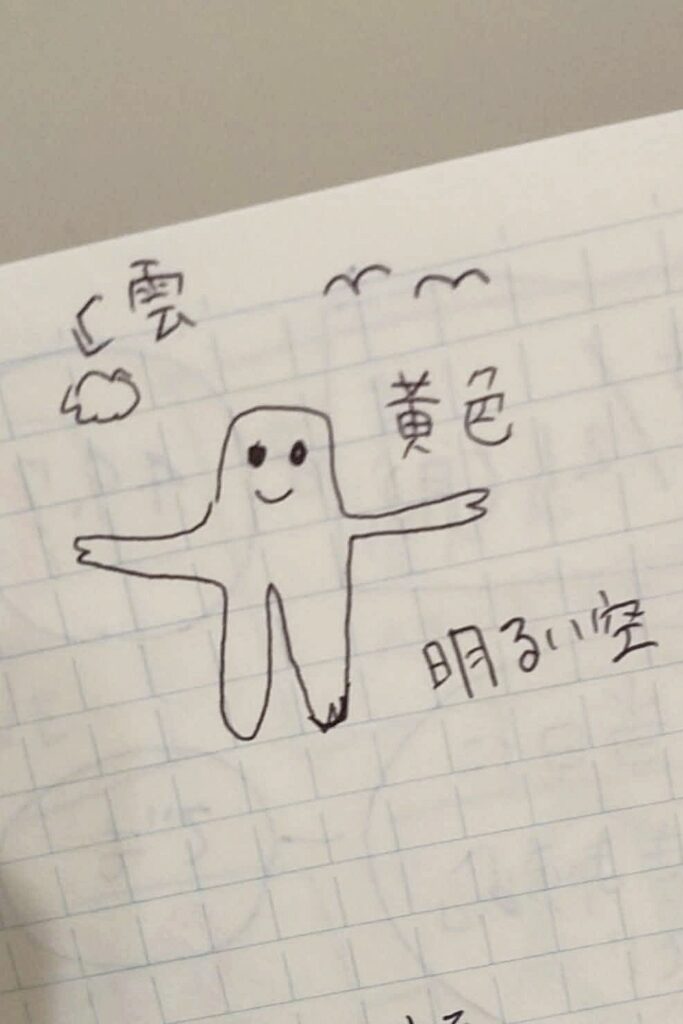 雲
黄色
明るい空